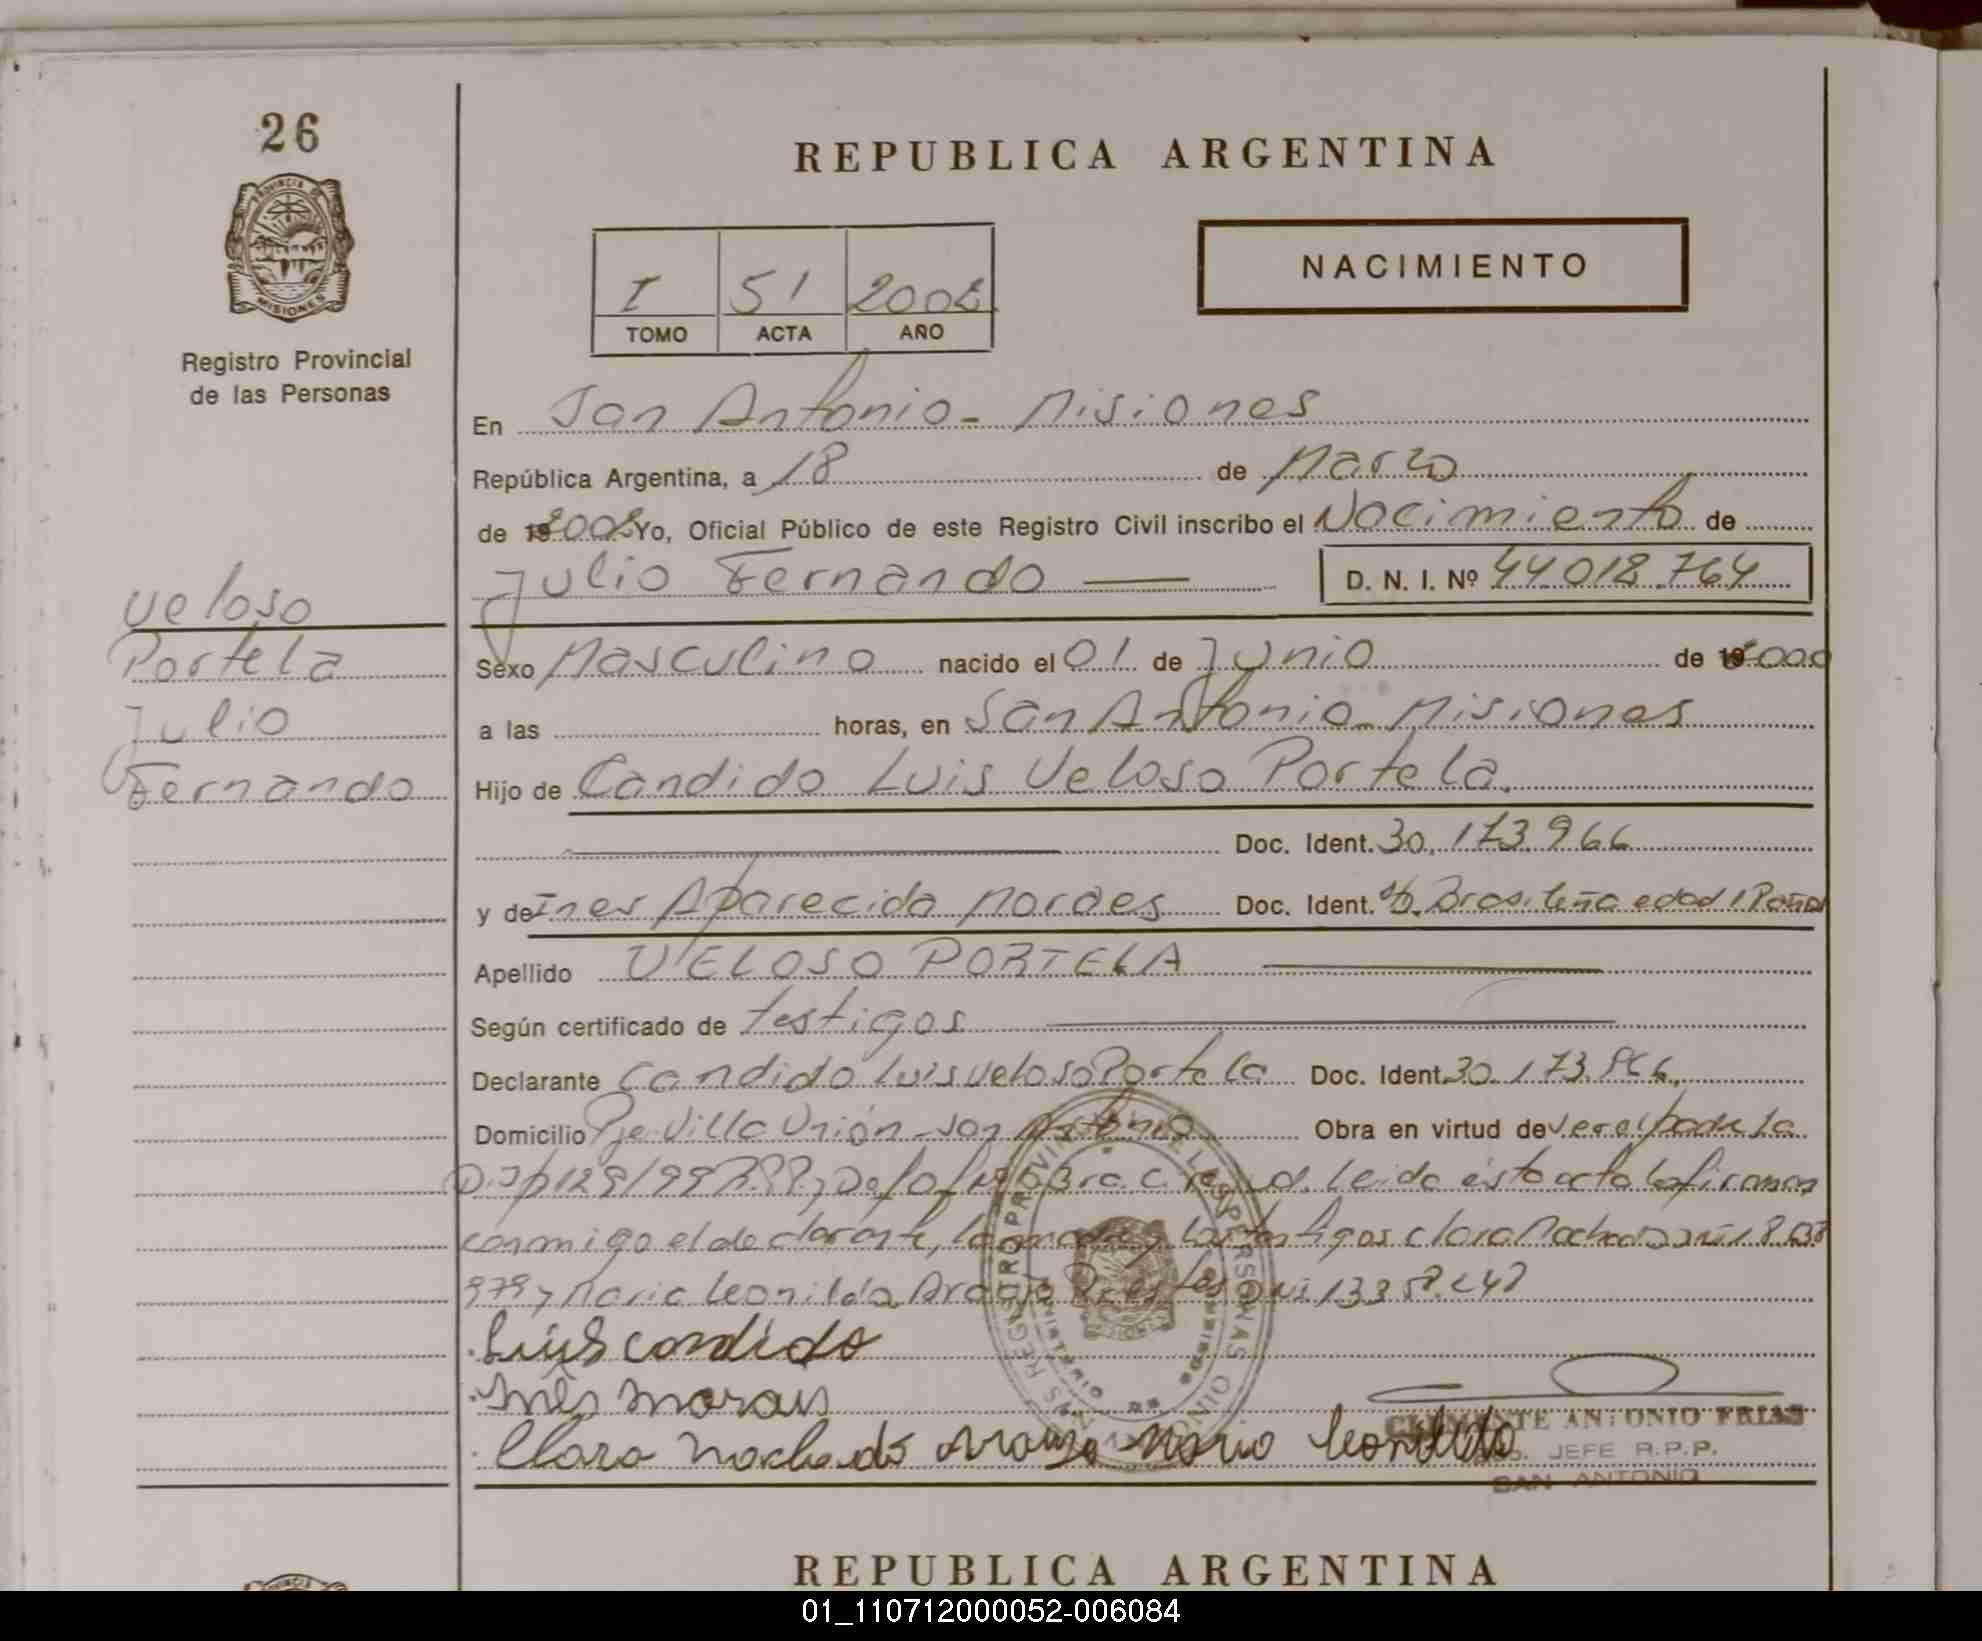 26
PROVINCIA DE
MISIONES
Registro Provincial
de las Personas
REPUBLICA ARGENTINA
I 51 2002
TOMO ACTA AÑO
NACIMIENTO
En San Antonio - Misiones
República Argentina, a 18 de Marzo
de 2002 Yo, Oficial Público de este Registro Civil inscribo el Nacimiento de
Julio Fernando D. N. I. Nº 44 018 764
Veloso
Portela
Julio
Fernando
Sexo Masculino nacido el 01 de Junio de 2000
a las horas, en San Antonio - Misiones
Hijo de Candido Luis Veloso Portela.
Doc. Ident. 30.173.966
y de Ines Aparecida Moraes Doc. Ident. Brasileña edad
Apellido VELOSO PORTELA
Según certificado de testigos
Declarante Candido Luis Veloso Portela Doc. Ident. 30.173.966
Domicilio Pje Villa Unión - San Antonio Obra en virtud de
leida ésta acta la firman
conmigo el declarante, la madre y los testigos Clara Machado
979 y Maria Leonilda
Luis candido
Inês morais
Clara Machado Maria Leonilda
CLEMENTE ANTONIO FRIAS
JEFE R.P.P.
SAN ANTONIO
REPUBLICA ARGENTINA
01_110712000052-006084